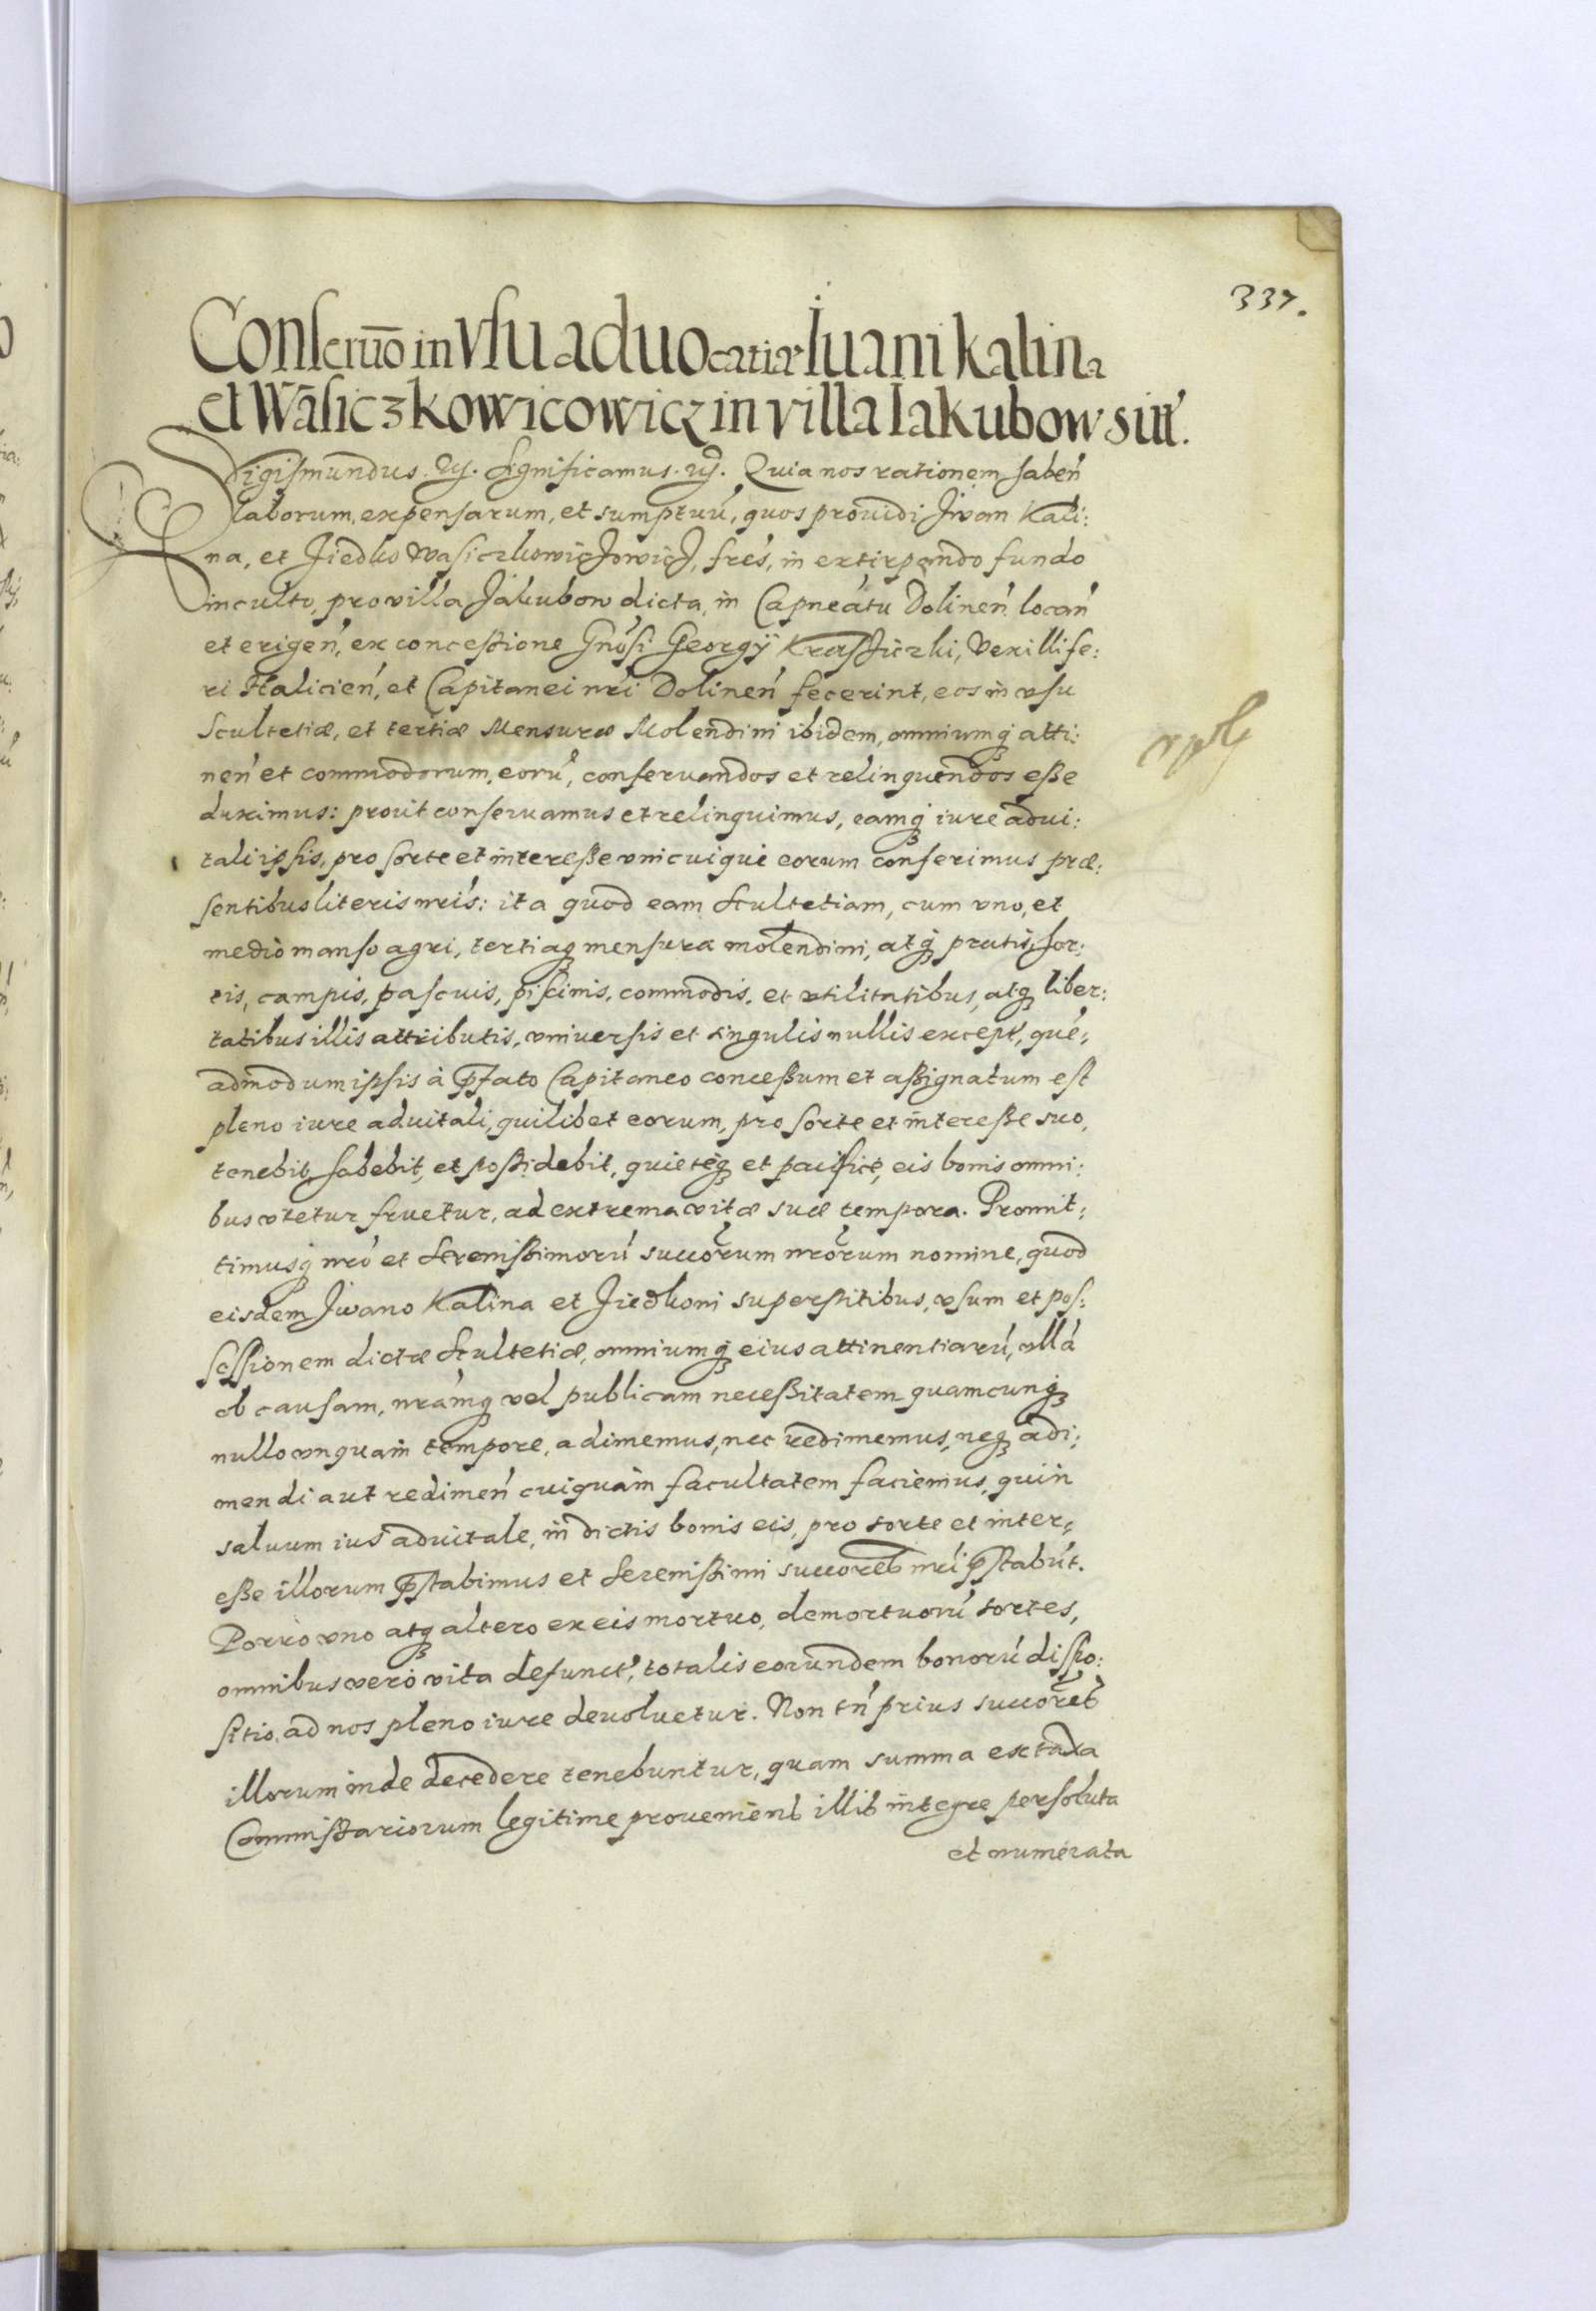 337.
Conseruō in vsu aduocatiæ Iuani kalina
et Wāsiczkowicowicz in villa Iakubow sitt'.
Sigismundus. etc. Significamus. etc. Quia nos rationem haben̄
laborum, expensarum, et sumptuū, quos prouidi Jwan Kali:
na, et Fiedko Wasiczkowiczowicz, frēs, in extirpando fundo
inculto, pro villa Jakubow dicta, in Capneātu Dolinen̄ locan̄
et erigen̄, ex concessione Gnōsi Georgÿ Krassiczki, Vexillife:
ri Halicien̄, et Capitanei nrī Dolinen̄ fecerint, eos in vsu
Scultetiæ, et tertiæ Mensuræ Molendini ibidem, omniumq3 atti:
nen̄ et commodorum, eorū, conseruandos et relinquendos eße
duximus: prout conseruamus et relinquimus, eamq3 iure adui:
tali ipsis, pro sorte et intereße vnicuique eorum conferimus præ:
sentibus literis nrīs: ita quod eam Scultetiam, cum vno, et
medio manso agri, tertiaq3 mensura molendini, atq3 pratis, hor:
tis, campis, pascuis, piscinis, commodis, et vtilitatibus, atq3 liber:
tatibus illis attributis, vniuersis et singulis nullis except', quē:
admodum ipsis à p̄fato Capitaneo conceßum et aßignatum est
pleno iure aduitali, quilibet eorum, pro sorte et intereße suo,
tenebit, habebit, et poßidebit, quietèq3 et pacificè, eis bonis omni:
bus vtetur fruetur, ad extrema vitæ suæ tempora. Promit:
timusq3 nrō et Serenißimorū succōrum nrōrum nomine, quod
eisdem Jwano Kalina et Fiedkoni superstitibus, vsum et pos:
sessionem dictæ Scultetiæ, omniumq3 eius attinentiarū, vllā
ob causam, nrāmq3 vel publicam neceßitatem quamcunq3
nullo vnquam tempore, adimemus, nec redimemus, neq3 adi:
mendi aut redimen̄ cuiquam facultatem faciemus, quin
saluum ius aduitale, in dictis bonis eis, pro sorte et inter:
eße illorum p̄stabimus et Serenißimi succores nrī p̄stabūt.
Porro vno atq3 altero ex eis mortuo, demortuorū sortes,
omnibus vero vita defunct', totalis eorundem bonorū dispo:
sitio, ad nos pleno iure deuoluetur. Non tn̄ prius succōres
illorum inde decedere tenebuntur, quam summa ex taxa
Commißariorum legitime proueniens illis integre persoluta
et numerata